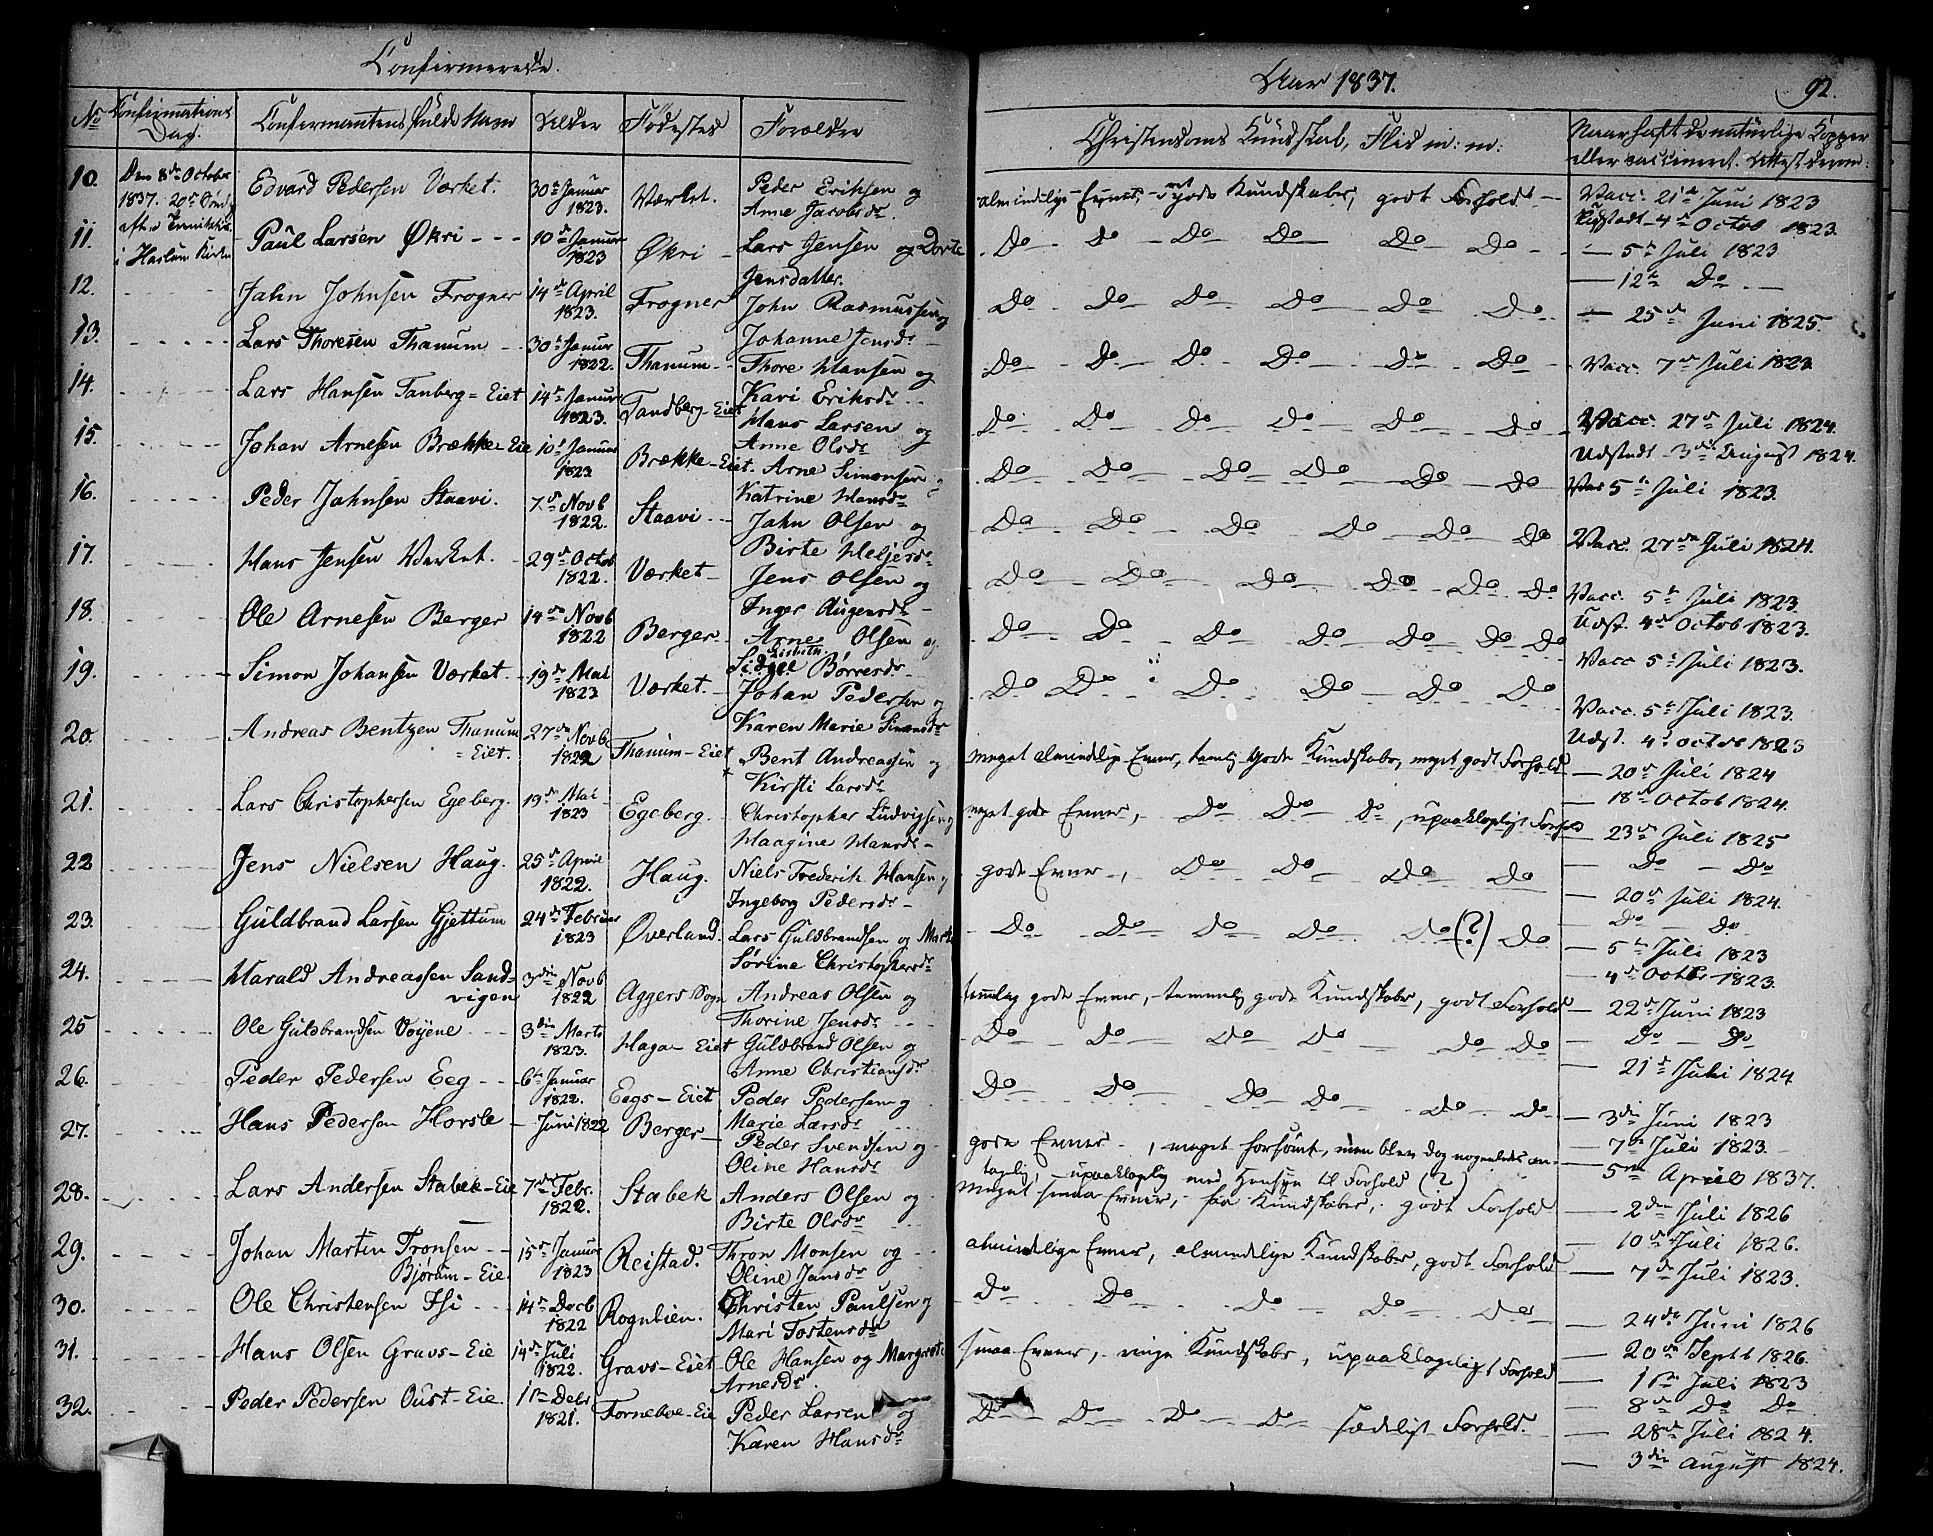 Confirmerede.
Aar 1837.
92.
No
Confirmations Dag.
Confirmantens fulde Navn
Alder
Fødested
Forældre
Christendoms Kundskab, Flid m: m:
Naar haft de naturlige Kopper
eller vaccineret. Attest derom:
10. Den 8de October 1837. 20de Sønd. efter Trinitatis i Haslum Kirke
Edvard Pedersen Værket. 30te Januar 1823. Værket. Peder Eriksen og Anne Jacobsdr.
almindelige Evner, gode Kundskaber, godt Forhold
Vacc. 21de Juni 1823
Udstædt 4de Octob 1823.
11. Paul Larsen Økri 10de Januar 1823 Økri Lars Jensen og Dorte Jensdatter.
Do Do Do Do Do Do
5te Juli 1823
12te Do
12. Jahn Johnsen Frogner 14de April 1823. Frogner John Rasmussen og Johanne Jensdr
Do Do Do Do Do Do
25de Juni 1825.
13. Lars Thoresen Thanum 30te Januar 1822. Thanum Thore Hansen og Kari Eriksdr
Do Do Do Do Do Do
Vacc. 7de Juli 1823
14. Lars Hansen Tanberg=Eiet 14de Januar 1823. Tandberg-Eiet Hans Larsen og Anne Olsdr
Do Do Do Do Do Do
Vacc. 27de Juli 1824.
Udstædt 3die August 1824.
15. Johan Arnesen Brække-Eie 10de Januar 1823 Brække-Eiet. Arne Simensen og Katrine Hansdr
Do Do Do Do Do Do
Vac 5te Juli 1823.
16. Peder Jahnsen Staavi. 7de Novb 1822. Staavi Jahn Olsen og Birte Heljesdr
Do Do Do Do Do Do
Vacc. 27de Juli 1824.
17. Hans Jensen Værket. 29de Octob 1822. Værket Jens Olsen og Inger Augensdr
Do Do Do Do Do Do
Vacc. 5te Juli 1823
Udst. 4de Octob 1823.
18. Ole Arnesen Berger 14de Novb 1822 Berger Arne Olsen og Lisbeth Børresdr
Do Do Do Do Do Do Do
Vacc 5te Juli 1823.
19. Simon Johansen Værket. 19de Mai 1823 Værket. Johan Pedersen og Karen Marie Simensdr
Do Do Do Do Do Do
Vacc. 5te Juli 1823.
Udst. 4de Octob 1823
20. Andreas Bentzen Thanum=Eiet. 27de Novb 1822 Thanum-Eiet Bent Andreassen og Kirsti Larsdr
meget almindelige Evner, temlig gode Kundskaber, meget godt Forhold
20de Juli 1824
18de Octob 1824.
21. Lars Christophersen Egeberg. 19de Mai 1823 Egeberg. Christopher Ludvigsen og Maagine Hansdr
meget gode Evner, Do Do Do, upaaklageligt Forhold
23de Juli 1825
Do Do
22 Jens Nielsen Haug. 25de April 1822. Haug. Niels Frederik Hansen og Ingeborg Pedersdr
gode Evner, Do Do Do Do
20de Juli 1824.
Do Do
23. Guldbrand Larsen Gjettum 24de Februar 1823 Øverland. Lars Guldbrandsen og Marte Sørine Christophersdr
Do Do Do Do Do (?) Do
5te Juli 1823
4de Octbr 1823.
24. Harald Andreassen Sandvigen 3die Novb 1822 Aggers Sogn Andreas Olsen og Thorine Jensdr
temlig gode Evner, temmelig gode Kundskaber, godt Forhold
22de Juni 1823
Do Do
25 Ole Guldbrandsen Vøyene 3die Marts 1823. Haga-Eiet Guldbrand Olsen og Anne Christiansdr
Do Do Do Do Do Do
21de Juni 1824.
26. Peder Pedersen Eeg 6te Januar 1822. Eegs-Eiet Peder Pedersen og Marie Larsdr
Do Do Do Do Do Do
3die Juni 1823
7de Juli 1823.
27. Hans Pedersen Horsle Juni 1822 Berger Peder Svendsen og Oline Hansdr
gode Evner, meget forsømt, men blev dog nogenledes antagelig, upaaklagelig med Hensyn til Forhold (?)
5te April 1837.
28. Lars Andersen Stabek-Eie 7de Febr. 1822. Stabek Anders Olsen og Birte Olsdr
meget smaa Evner, faa Kundskaber, godt Forhold
2den Juli 1826
10de Juli 1826.
29. Johan Martin Tronsen Bjørum-Eie. 15de Januar 1823 Reistad. Thron Monsen og Oline Jansdr
almindelige Evner, almindelige Kundskaber, godt Forhold
7de Juli 1823.
30. Ole Christensen Isi 14de Decb 1822 Rognlien. Christen Paulsen og Mari Tostensdr
Do Do Do Do Do
24de Juni 1826
20de Septb 1826.
31. Hans Olsen Gravs-Eie 14de Juli 1822. Gravs-Eiet Ole Hansen og Margrete Arnesdr.
smaa Evner, ringe Kundskaber, upaaklageligt Forhold
1ste Juli 1823
8de Do Do
32. Peder Pedersen Oust-Eie. 1821. Forneboe-Eie Peder Larsen og Karen Hansdr
Do Do Do Do sædeligt Forhold.
28de Juli 1824.
3die August 1824.